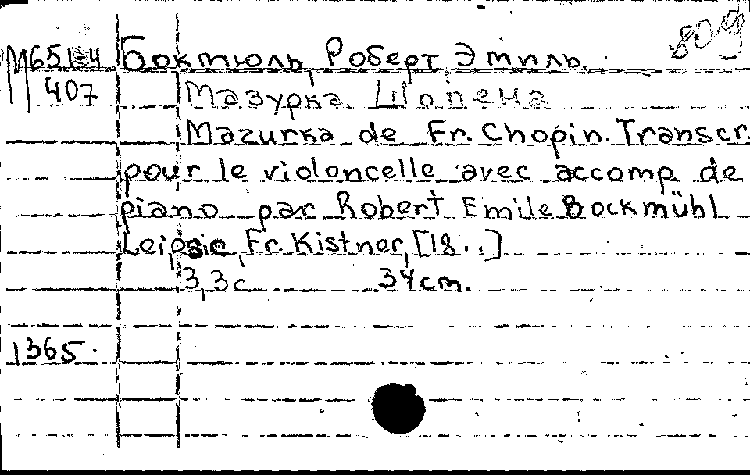 809
М651-4 Боктюль, Роберт Эмиль.
407 Мазурка Шопена
Mazurka de Fr. Chopin. Transcr.
pour le violoncelle avec accomp. de
piano par Robert Emile Bockmühl
Leipsic, Fr. Kistner, [18..]
3,3 с. 34 cm.
1365.